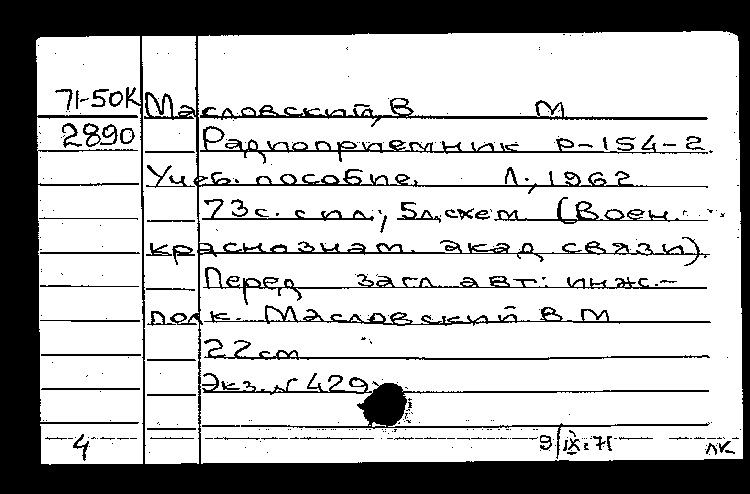 71-50К Масловский, В М
2890 Радиоприемник Р-154-2.
Учеб. пособие. Л., 1962
73с. с ил., 5л. схем. (Воен.
краснознам. акад связи).
Перед загл авт: инж.-
полк. Масловский В.М
22см
Экз. № 429
4 9/IX-71 ЛК